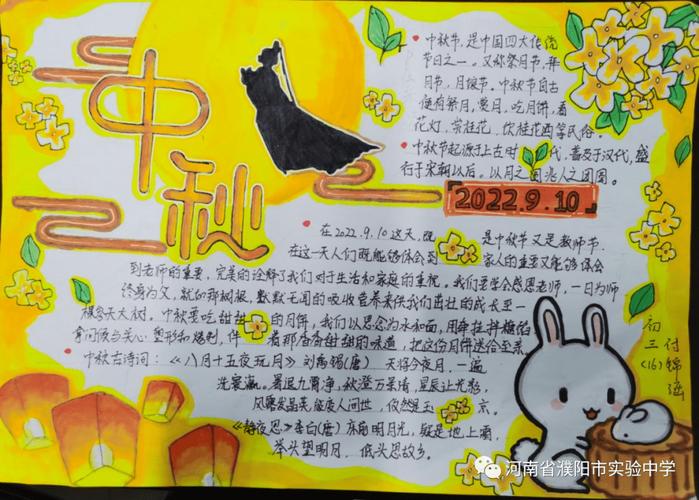 中秋
中秋节,是中国四大传统
节日之一。又称祭月节、拜
月节、月娘节。中秋节自古
便有祭月、赏月、吃月饼、看
花灯、赏桂花、饮桂花酒等民俗。
中秋节起源于上古时代,普及于汉代,盛
行于宋朝以后。以月之圆兆人之团圆。
2022.9.10
在2022.9.10这天,既是中秋节又是教师节。
在这一天人们既能够体会到家人的重要又能够体会
到老师的重要,完美的诠释了我们对于生活和家庭的重视。我们要学会感恩老师,一日为师
终身为父,就如那树根,默默无闻的吸收营养来供我们茁壮的成长至一
棵参天大树。中秋要吃甜甜的月饼,我们以思念为水和面,用牵挂拌馅
拿问候当关心 塑形和烧制,伴着那香香甜甜的味道,把这份月饼送给至亲。
中秋古诗词:《八月十五夜玩月》刘禹锡(唐) 天将今夜月,一遍
洗寰瀛。暑退九霄净,秋澄万景清,星辰让光彩,
风露发晶英,能变人间世,攸然是玉京。
《静夜思》李白(唐)床前明月光,疑是地上霜,
举头望明月,低头思故乡。
初三(16)付锦
河南省濮阳市实验中学